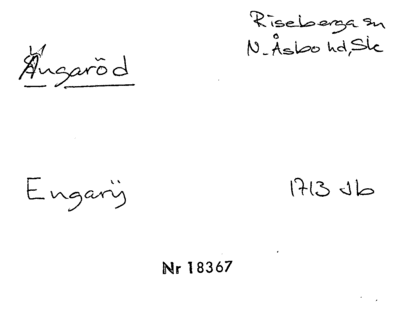 Riseberga sn
Ängaröd
N. Åsbo hd, Sk
Engarÿ
1713 Jb
Nr 18367